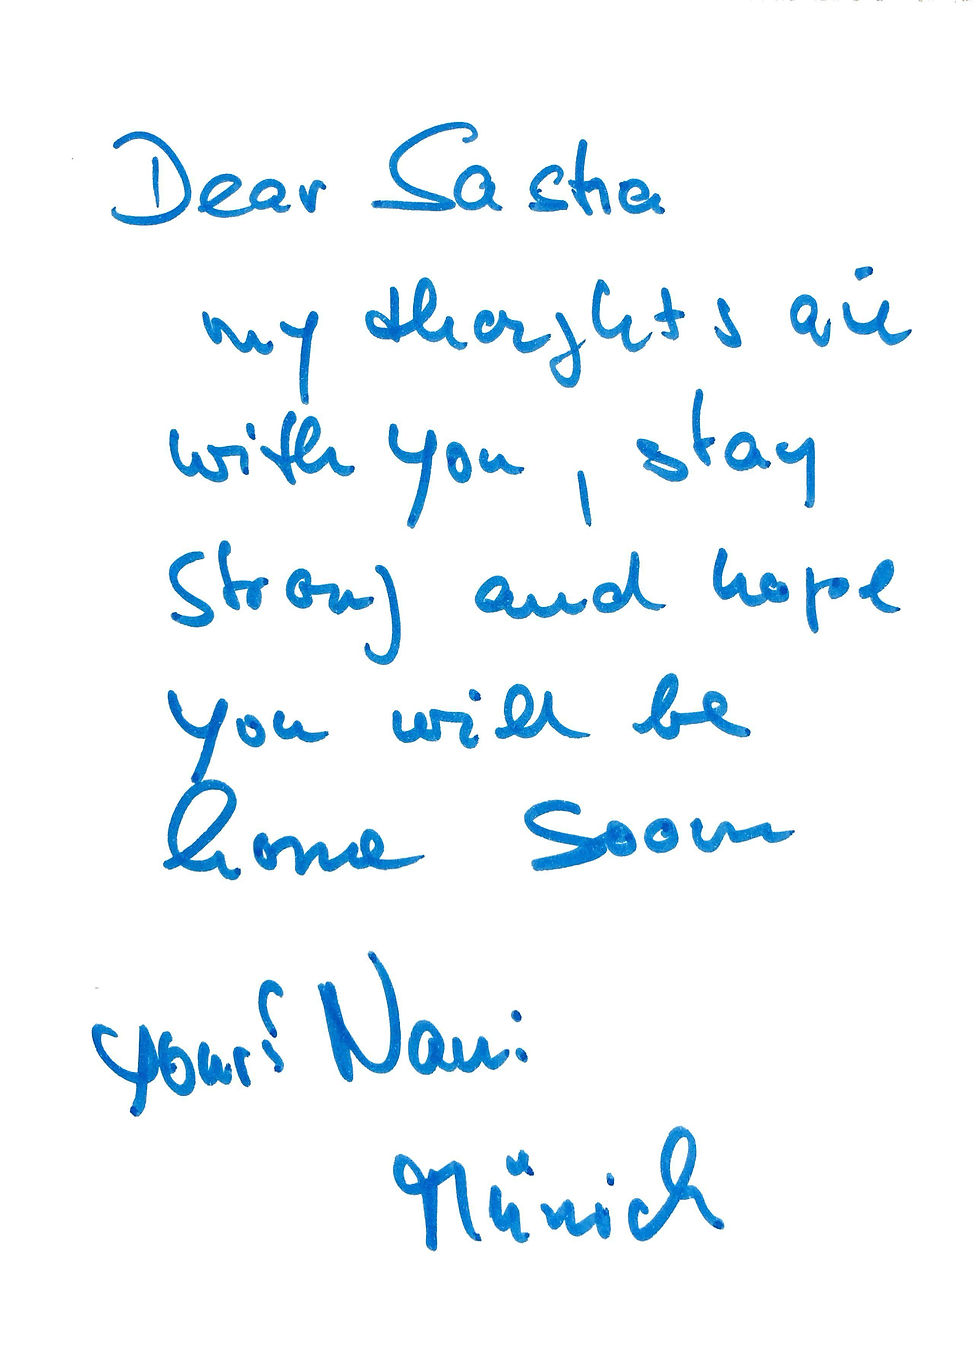 Dear Sasha
my thoughts are
with you, stay
strong and hope
you will be
home soon
yours Nani
Münich